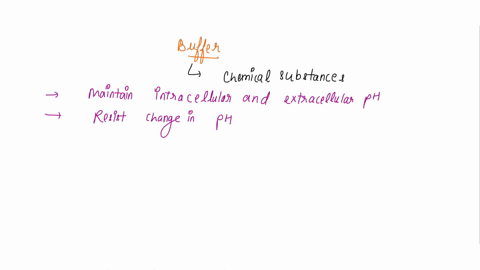 Buffer
↳ Chemical substances
→ Maintain intracellular and extracellular pH
→ Resist change in pH